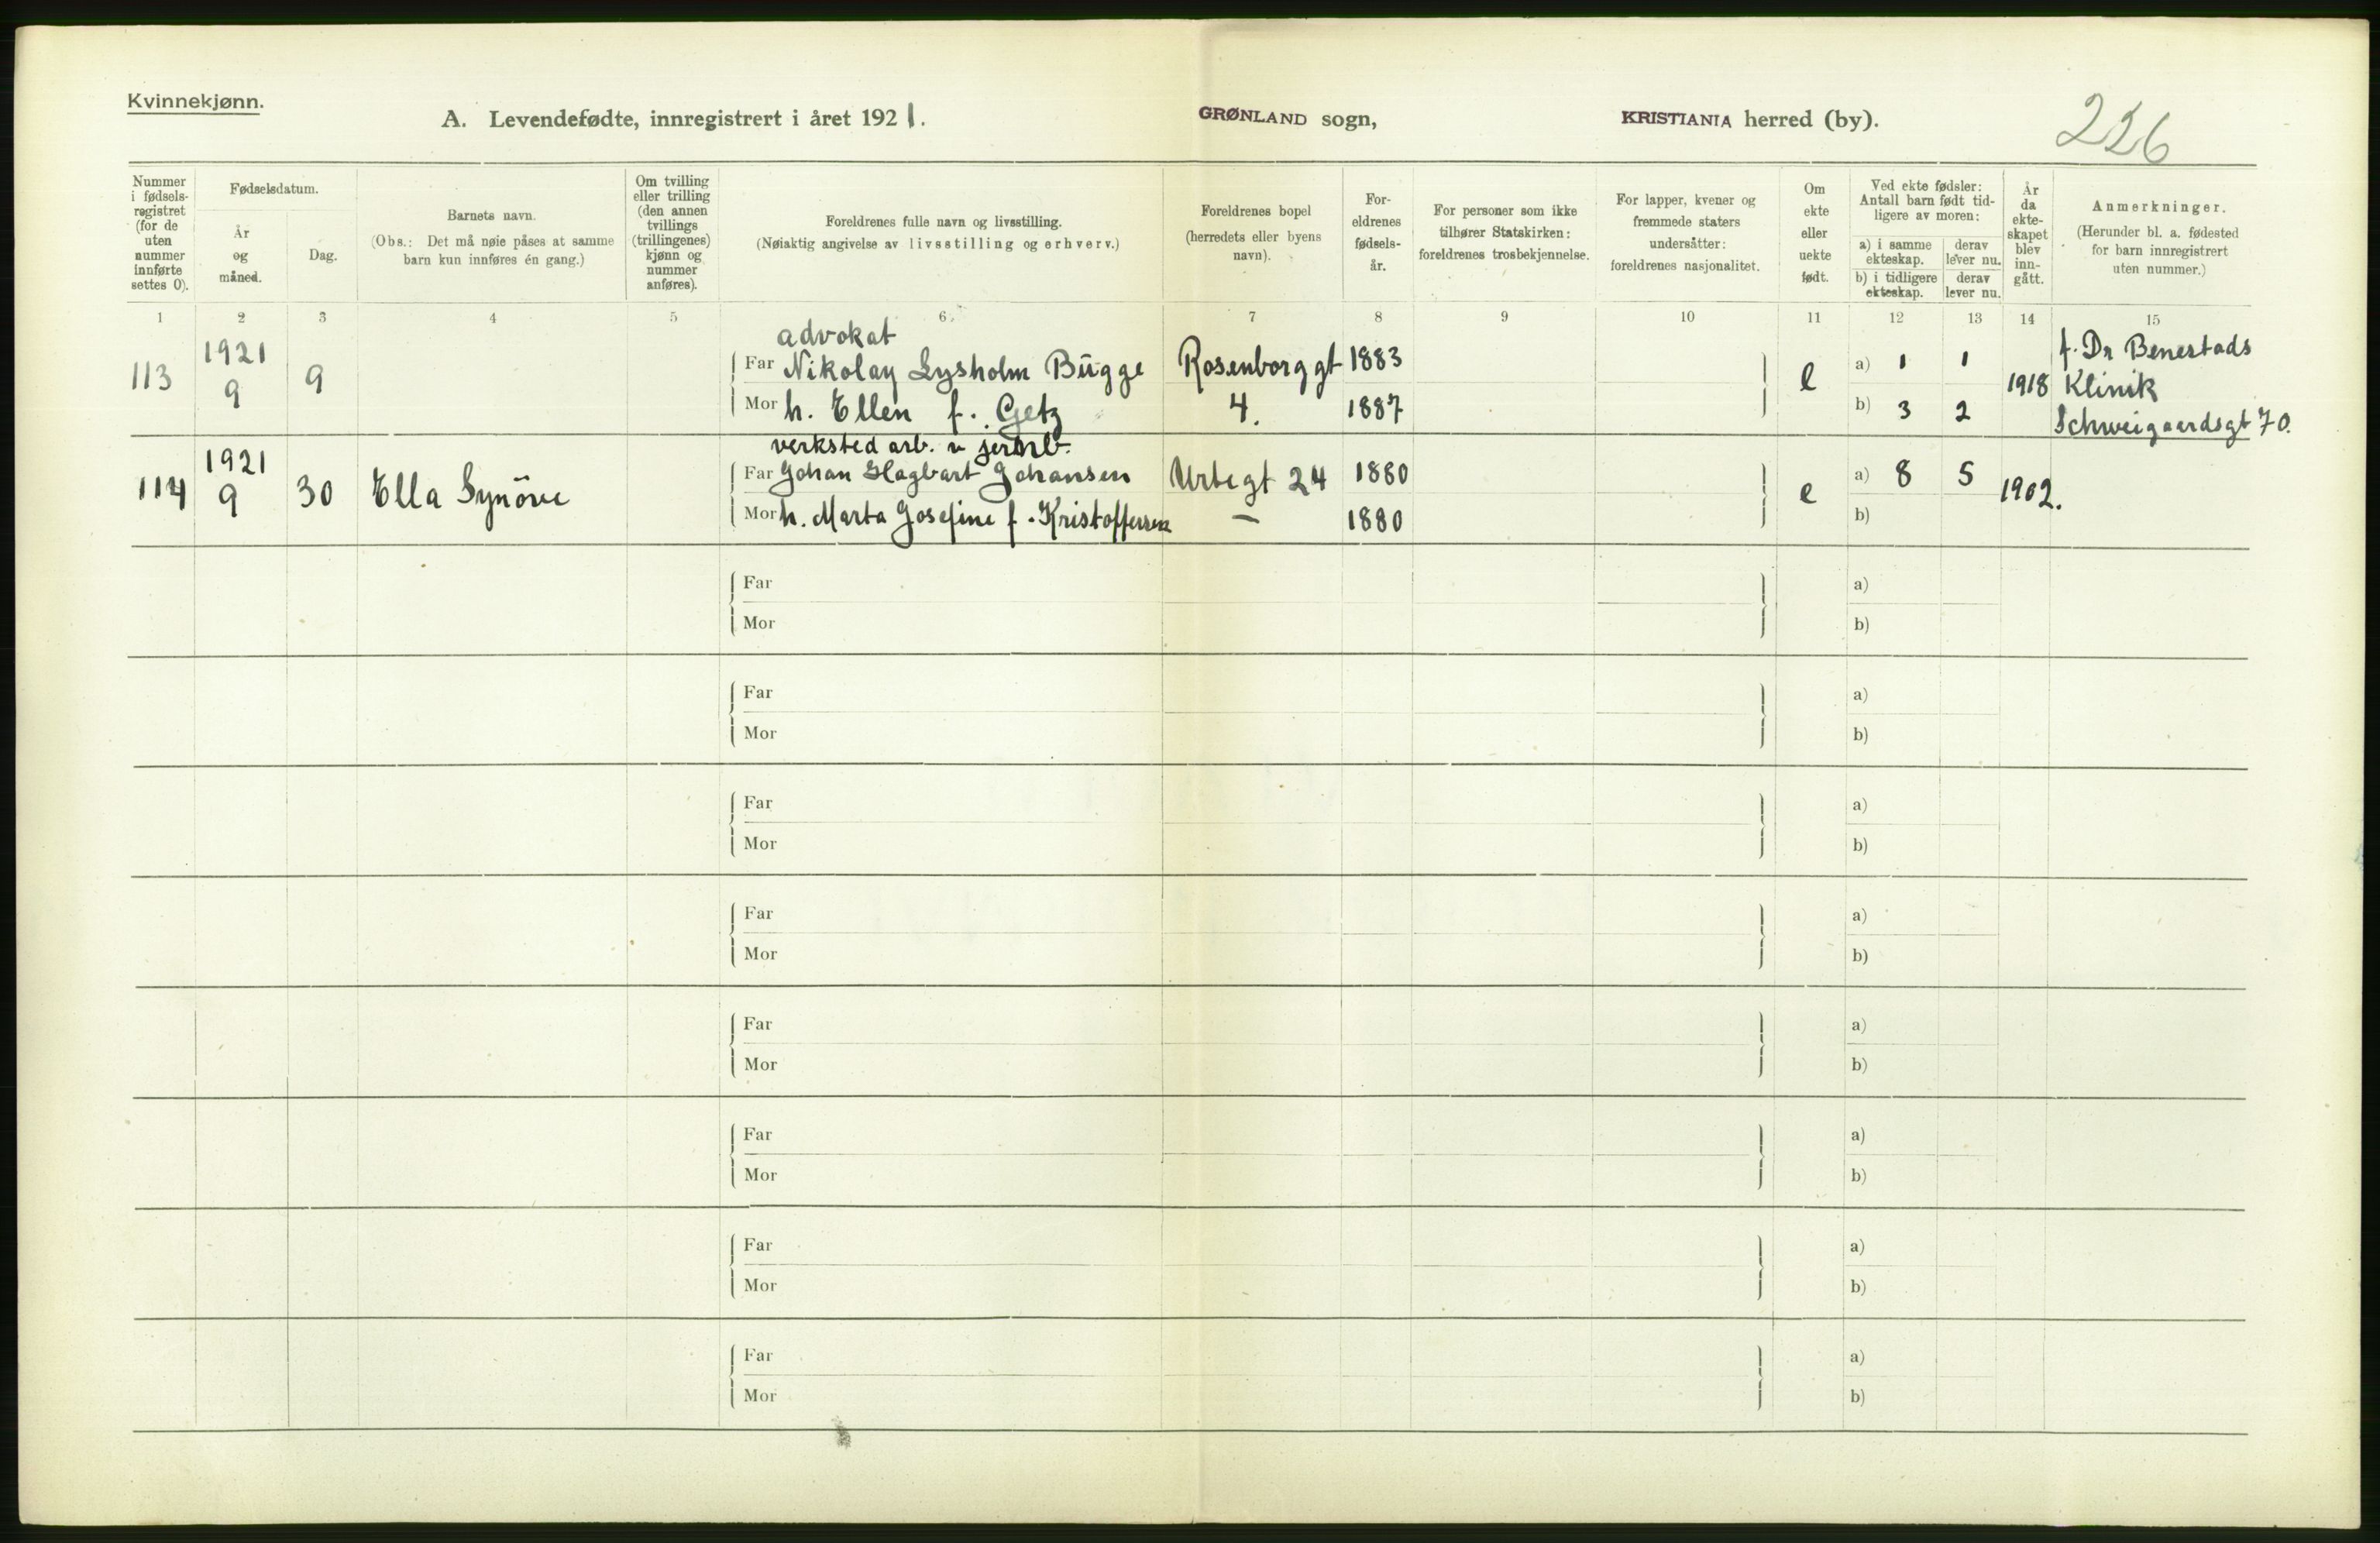 Kvinnekjønn.
A. Levendefødte, innregistrert i året 1921. GRØNLAND sogn, KRISTIANIA herred (by). 226
Nummer i fødsels-registret (for de uten nummer innførte settes 0).
Fødselsdatum.
År og måned.
Dag.
Barnets navn.
(Obs.: Det må nøie påses at samme barn kun innføres én gang.)
Om tvilling eller trilling (den annen tvillings (trillingenes) kjønn og nummer anføres).
Foreldrenes fulle navn og livsstilling.
(Nøiaktig angivelse av livsstilling og erhverv.)
Foreldrenes bopel (herredets eller byens navn).
For-eldrenes fødsels-år.
For personer som ikke tilhører Statskirken: foreldrenes trosbekjennelse.
For lapper, kvener og fremmede staters undersåtter: foreldrenes nasjonalitet.
Om ekte eller uekte født.
Ved ekte fødsler: Antall barn født tid-ligere av moren:
a) i samme ekteskap. derav lever nu.
b) i tidligere ekteskap. derav lever nu.
År da ekte-skapet blev inn-gått.
Anmerkninger.
(Herunder bl. a. fødested for barn innregistrert uten nummer.)
1 2 3 4 5 6 7 8 9 10 11 12 13 14 15
advokat
113 1921 9 9 Far Nikolay Lysholm Bugge Rosenborggt 1883 e a) 1 1 1918 f. Dr Benestads Klinik
Mor h. Ellen f. Getz 4. 1887 b) 3 2 Schweigaardsgt 70.
verksted arb. v jernb.
114 1921 9 30 Ella Synöve Far Johan Hagbart Johansen Urtegt 24 1880 e a) 8 5 1902.
Mor h. Marta Josefine f. Kristoffersen — 1880 b)
Far a)
Mor b)
Far a)
Mor b)
Far a)
Mor b)
Far a)
Mor b)
Far a)
Mor b)
Far a)
Mor b)
Far a)
Mor b)
Far a)
Mor b)